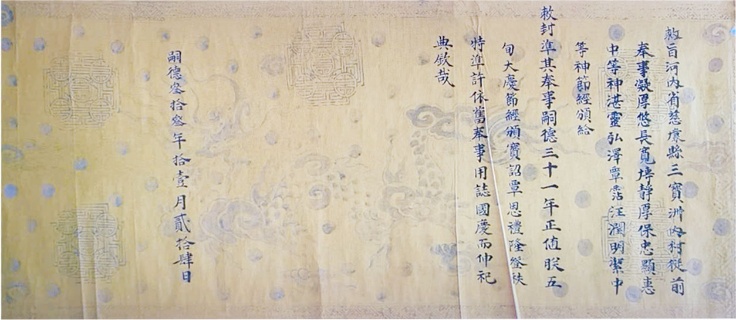 敕旨河內省慈廉縣三寶洲內村從前
奉事凝厚悠長寬博靜厚保忠顯惠
中等神湛靈弘澤覃霑汪潤明潔中
等神節經頒給
敕封準其奉事嗣德三十一年正值朕五
旬大慶節經頒寶詔覃恩禮隆登秩
特準許依舊奉事用誌國慶而伸祀
典欽哉
嗣德叄拾叄年拾壹月貳拾肆日